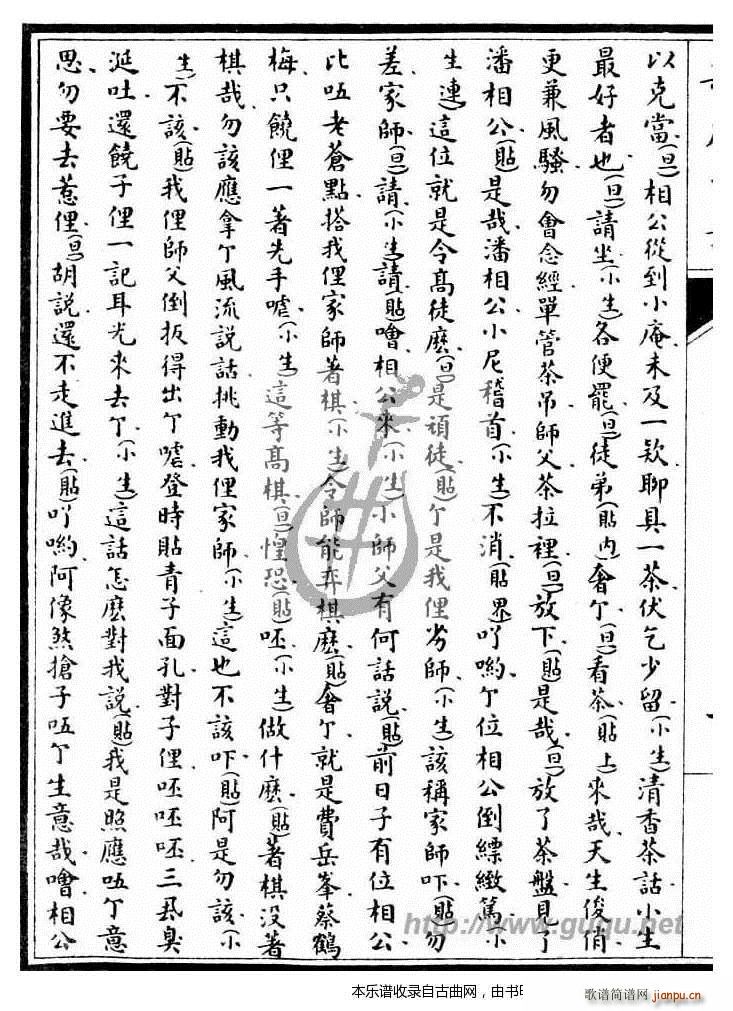 以克當(旦)相公從到小庵未及一欵聊具一茶伏乞少留(小生)清香茶話小生
最好者也(旦)請坐(小生)各便罷(旦)徒弟(貼內)奢个(旦)看茶(貼上)來哉天生俊俏
更兼風騷勿會念經單管茶吊師父茶拉裡(旦)放下(貼)是哉(旦)放了茶盤見了
潘相公(貼)是哉潘相公小尼稽首(小生)不消(貼界)吖喲个位相公倒縹緻篤(小
生連)這位就是令高徒麽(旦)是頑徒(貼)个是我俚劣師(小生)該稱家師吓(貼)勿
差家師(旦)請(小生)請(貼)噲相公來(小生)小師父有何話說(貼)前日子有位相公
比唔老蒼點搭我俚家師著棋(小生)令師能弈棋麽(貼)奢个就是費岳峯蔡鶴
梅只饒俚一著先手嘘(小生)這等高棋(旦)惶恐(貼)呸(小生)做什麽(貼)著棋没著
棋哉勿該應拿个風流說話挑動我俚家師(小生)這也不該吓(貼)阿是勿該(小
生)不該(貼)我俚師父倒扳得出个嘘登時貼青子面孔對子俚呸呸呸三𠰻臭
涎吐還饒子俚一記耳光來去个(小生)這話怎麽對我說(貼)我是照應唔个意
思勿要去惹俚(旦)胡說還不走進去(貼)吖喲阿像煞搶子唔个生意哉噲相公
http://www.guqu.net
本乐谱收录自古曲网，由书
歌谱简谱网
jianpu.cn